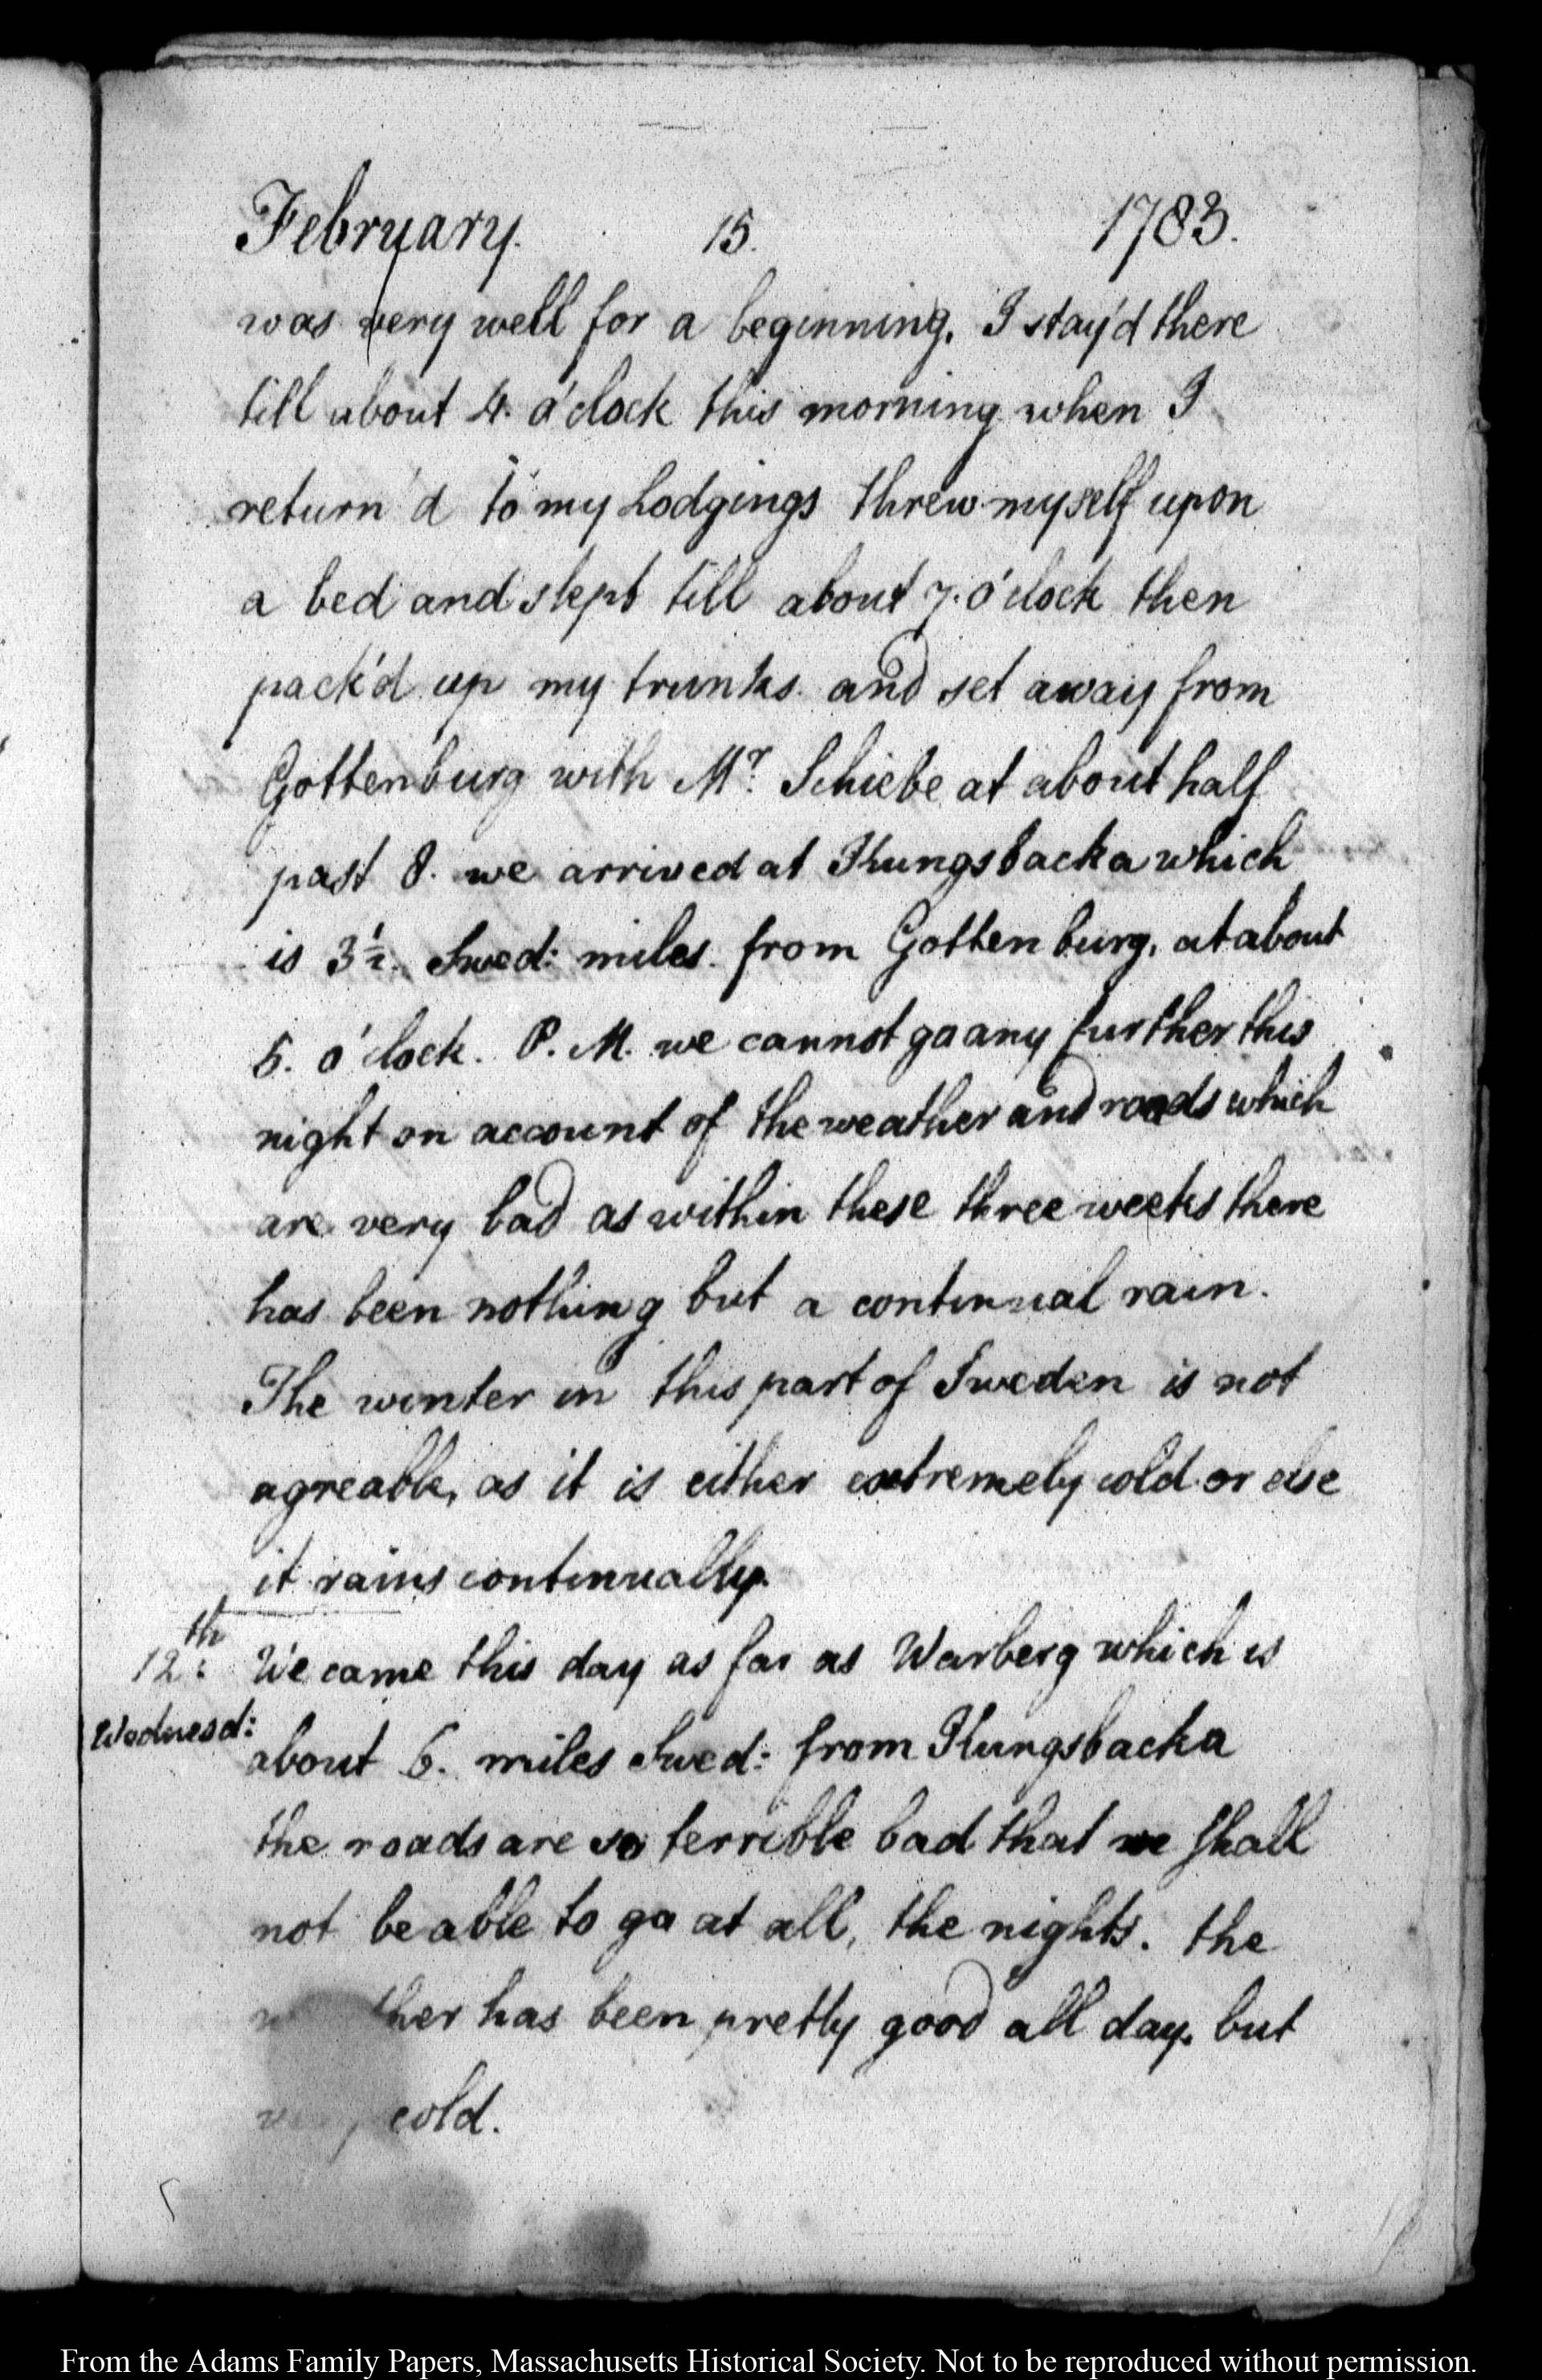 February. 15. 1783.
was very well for a beginning. I stay'd there
till about 4. o'clock this morning when I
return'd to my Lodgings threw myself upon
a bed and slept till about 7. o'clock then
pack'd up my trunks and set away from
Gottenburg with Mr. Schiebe at about half
past 8. we arrived at Kungsbacka which
is 3½. Swed: miles from Gottenburg, at about
5. o'clock. P. M. we cannot go any further this
night on account of the weather and roads which
are very bad as within these three weeks there
has been nothing but a continual rain.
The winter in this part of Sweden is not
agreable, as it is either extremely cold or else
it rains continually.
12th: We came this day as far as Warberg which is
Wednesd:
about 6. miles Swed: from Kungsbacka
the roads are so terrible bad that we shall
not be able to go at all, the nights. the
weather has been pretty good all day. but
very cold.
From the Adams Family Papers, Massachusetts Historical Society. Not to be reproduced without permission.